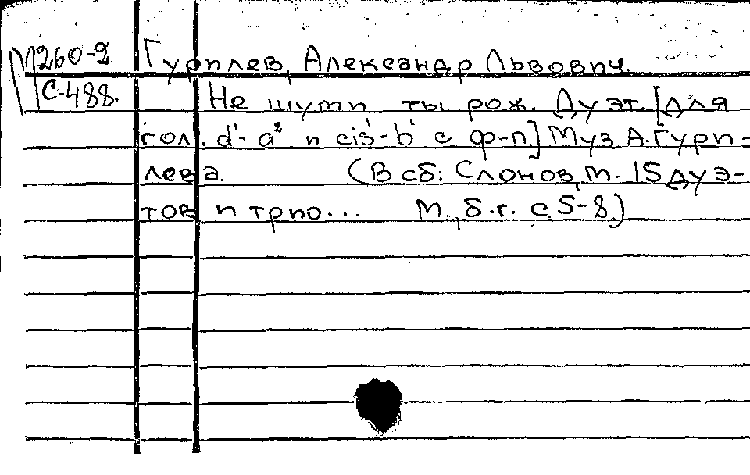 М260-2
С-488.
Гурилев, Александр Львович.
Не шути ты рож. Дуэт. [для
гол. d'- a² и cis'- b' с ф-п] Муз. А. Гури-
лева. (В сб: Слонов, М. 15 дуэ-
тов и трио... М., б.г. с. 5-8)